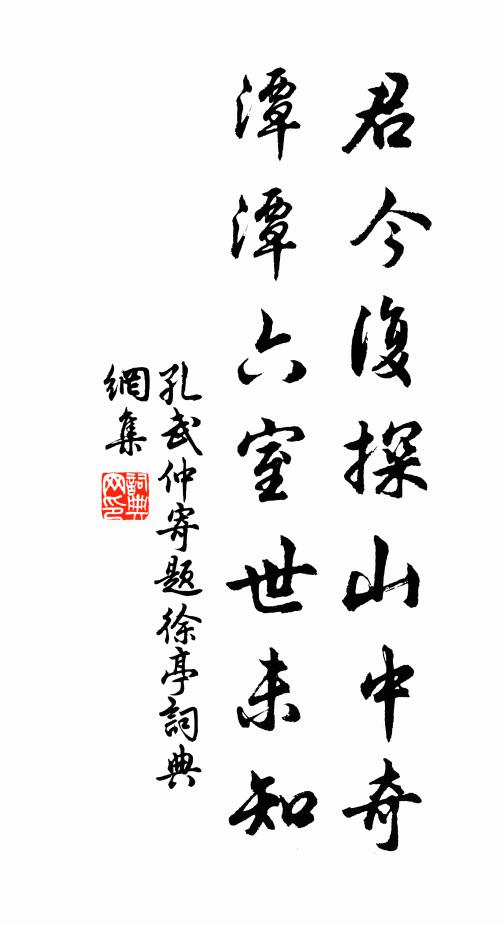 君今復探山中奇
潭潭六室世未知
孔武仲寄題徐亭詞典
網集
詞典
网印